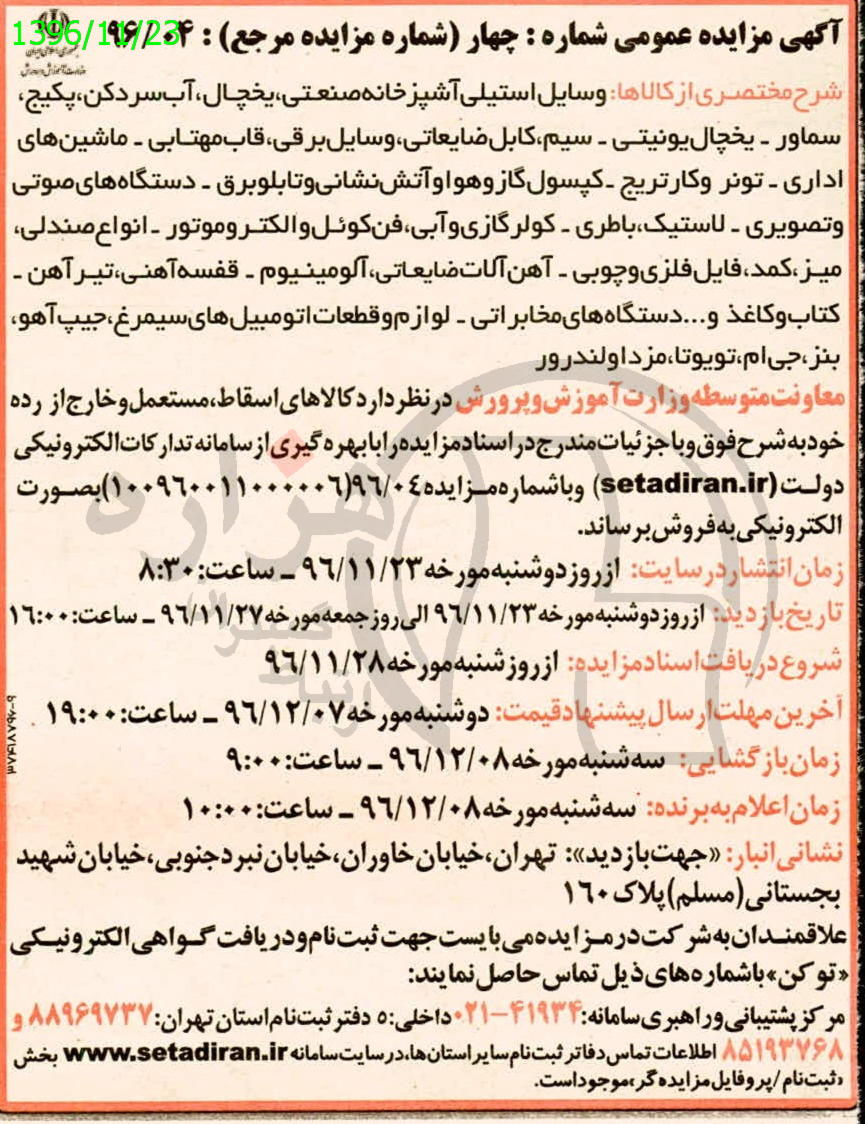 1396/11/23
آگهی مزایده عمومی شماره : چهار (شماره مزایده مرجع) : ۹۶/۰۴
شرح مختصری از کالاها: وسایل استیلی آشپزخانه صنعتی، یخچال، آب سردکن، پکیج،
سماور ـ یخچال یونیتی ـ سیم، کابل ضایعاتی، وسایل برقی، قاب مهتابی ـ ماشین های
اداری ـ تونر وکارتریج ـ کپسول گاز وهوا و آتش نشانی و تابلو برق ـ دستگاه های صوتی
وتصویری ـ لاستیک، باطری ـ کولر گازی و آبی، فن کوئل و الکتروموتور ـ انواع صندلی،
میز، کمد، فایل فلزی و چوبی ـ آهن آلات ضایعاتی، آلومینیوم ـ قفسه آهنی، تیرآهن ـ
کتاب و کاغذ و... دستگاه های مخابراتی ـ لوازم و قطعات اتومبیل های سیمرغ، جیپ آهو،
بنز، جی ام، تویوتا، مزدا و لندرور
معاونت متوسطه وزارت آموزش و پرورش در نظر دارد کالاهای اسقاط، مستعمل و خارج از رده
خود به شرح فوق و با جزئیات مندرج در اسناد مزایده را با بهره گیری از سامانه تدارکات الکترونیکی
دولت (setadiran.ir) وباشماره مزایده ۹۶/۰۴ (۱۰۰۹۶۰۰۱۱۰۰۰۰۰۶) بصورت
الکترونیکی به فروش برساند.
زمان انتشار در سایت: از روز دوشنبه مورخه ۹۶/۱۱/۲۳ ـ ساعت: ۸:۳۰
تاریخ بازدید: از روز دوشنبه مورخه ۹۶/۱۱/۲۳ الی روز جمعه مورخه ۹۶/۱۱/۲۷ ـ ساعت: ۱۶:۰۰
شروع دریافت اسناد مزایده: از روز شنبه مورخه ۹۶/۱۱/۲۸
آخرین مهلت ارسال پیشنهاد قیمت: دوشنبه مورخه ۹۶/۱۲/۰۷ ـ ساعت: ۱۹:۰۰
زمان بازگشایی: سه شنبه مورخه ۹۶/۱۲/۰۸ ـ ساعت: ۹:۰۰
زمان اعلام به برنده: سه شنبه مورخه ۹۶/۱۲/۰۸ ـ ساعت: ۱۰:۰۰
نشانی انبار: «جهت بازدید»: تهران، خیابان خاوران، خیابان نبرد جنوبی، خیابان شهید
بجستانی (مسلم) پلاک ۱۶۰
علاقمندان به شرکت در مزایده می بایست جهت ثبت نام و دریافت گواهی الکترونیکی
«توکن» باشماره های ذیل تماس حاصل نمایند:
مرکز پشتیبانی و راهبری سامانه: ۴۱۹۳۴-۰۲۱ داخلی: ۵ دفتر ثبت نام استان تهران: ۸۸۹۶۹۷۳۷ و
۸۵۱۹۳۷۶۸ اطلاعات تماس دفاتر ثبت نام سایر استان ها، در سایت سامانه www.setadiran.ir بخش
«ثبت نام / پروفایل مزایده گر» موجود است.
هزاره